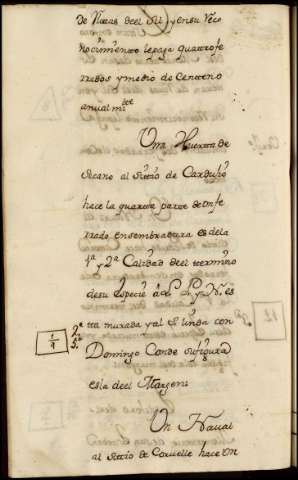 De Nieras de el Sil y en su reco
nocimiento le paga quatro fe
rrados y medio de Centeno
anualm.te
Una Huerta de
Secano al Sitio de Carduño
hace la quarta parte de un fe
rrado en sembradura es de la
1ª y 2ª Calidad de el termino
de su Especie a L. P. y N. es
2ª tta murada y al S. linda con
5ª Domingo Conde su figura
1/4
es la de el Margen
Un Naval
al Sitio de Cornelle hace un
12